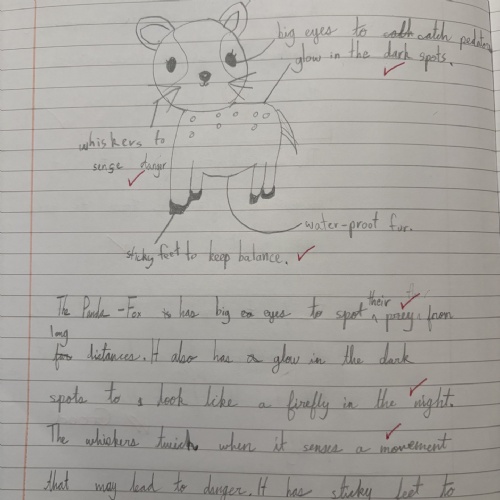 big eyes to catch pedators
glow in the dark spots.
whiskers to
sense danger
water-proof fur.
sticky feet to keep balance.
The Panda-Fox has big eyes to spot their prey from
long distances. It also has glow in the dark
spots to look like a firefly in the night.
The whiskers twich when it senses a movement
that may lead to danger. It has sticky feet to